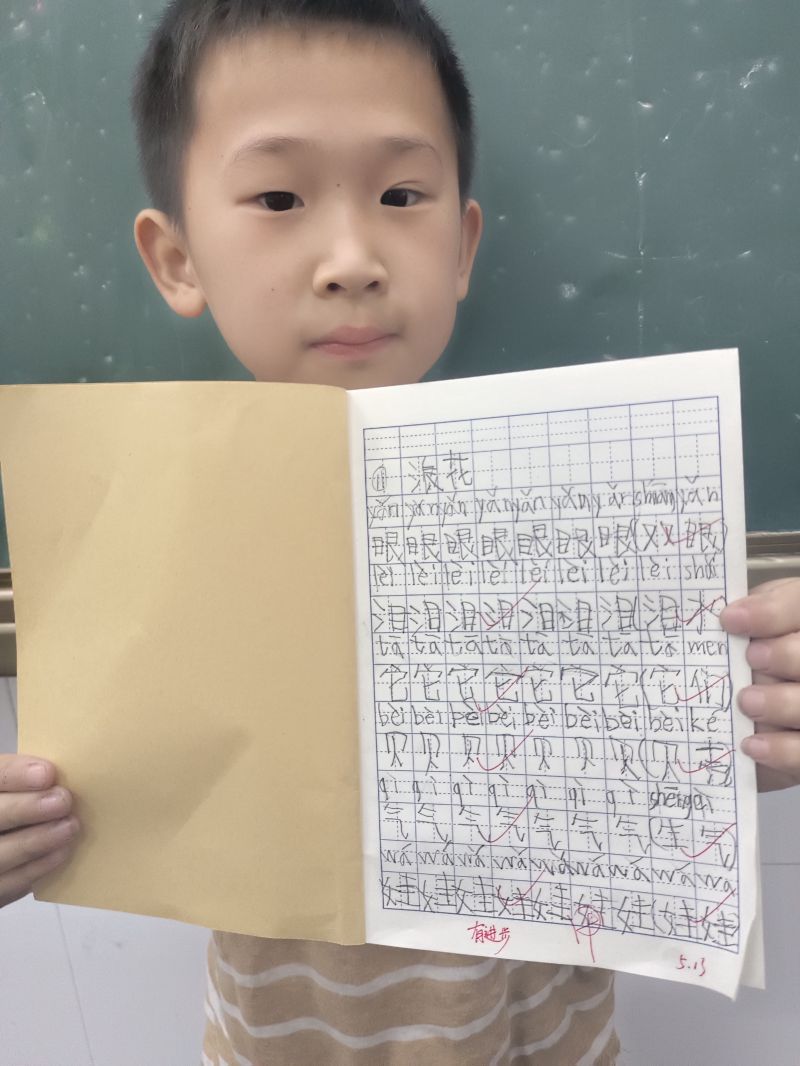 ⑪ 浪花
yǎn yǎn yǎn yǎn yǎn yǎn yǎn shuāng yǎn
眼 眼 眼 眼 眼 眼 眼 (双 眼)
lèi lèi lèi lèi lèi lèi lèi lèi shuǐ
泪 泪 泪 泪 泪 泪 泪 (泪 水)
tā tā tā tā tā tā tā tā men
它 它 它 它 它 它 它 (它 们)
bèi bèi bèi bèi bèi bèi bèi bèi ké
贝 贝 贝 贝 贝 贝 贝 (贝 壳)
qì qì qì qì qì qì qì shēng qì
气 气 气 气 气 气 气 (生 气)
wá wá wá wá wá wá wá wá wa
娃 娃 娃 娃 娃 娃 娃 (娃 娃)
有进步 甲 5.13